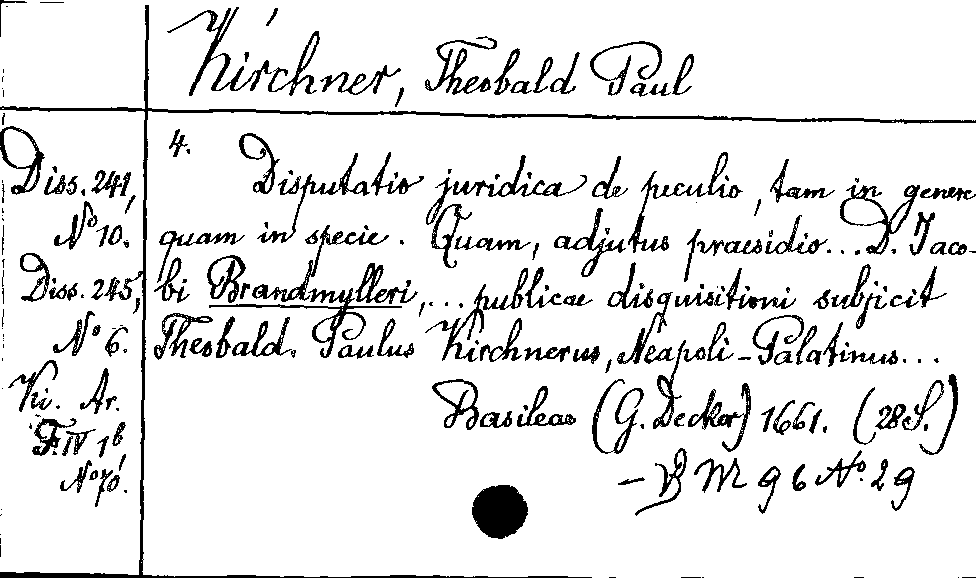 Kirchner, Theobald Paul
4.
Diss. 241, Disputatio juridica de peculio, tam in genere
No 10. quam in specie. Quam, adjutus praesidio... D. Jaco-
Diss. 245, bi Brandmylleri,... publicae disquisitioni subjicit
No 6. Theobald. Paulus Kirchnerus, Neapoli-Palatinus...
Ki. Ar. Basileae (G. Decker) 1661. (28 S.)
F. IV 1b
No 70. – VB M 96 No. 29